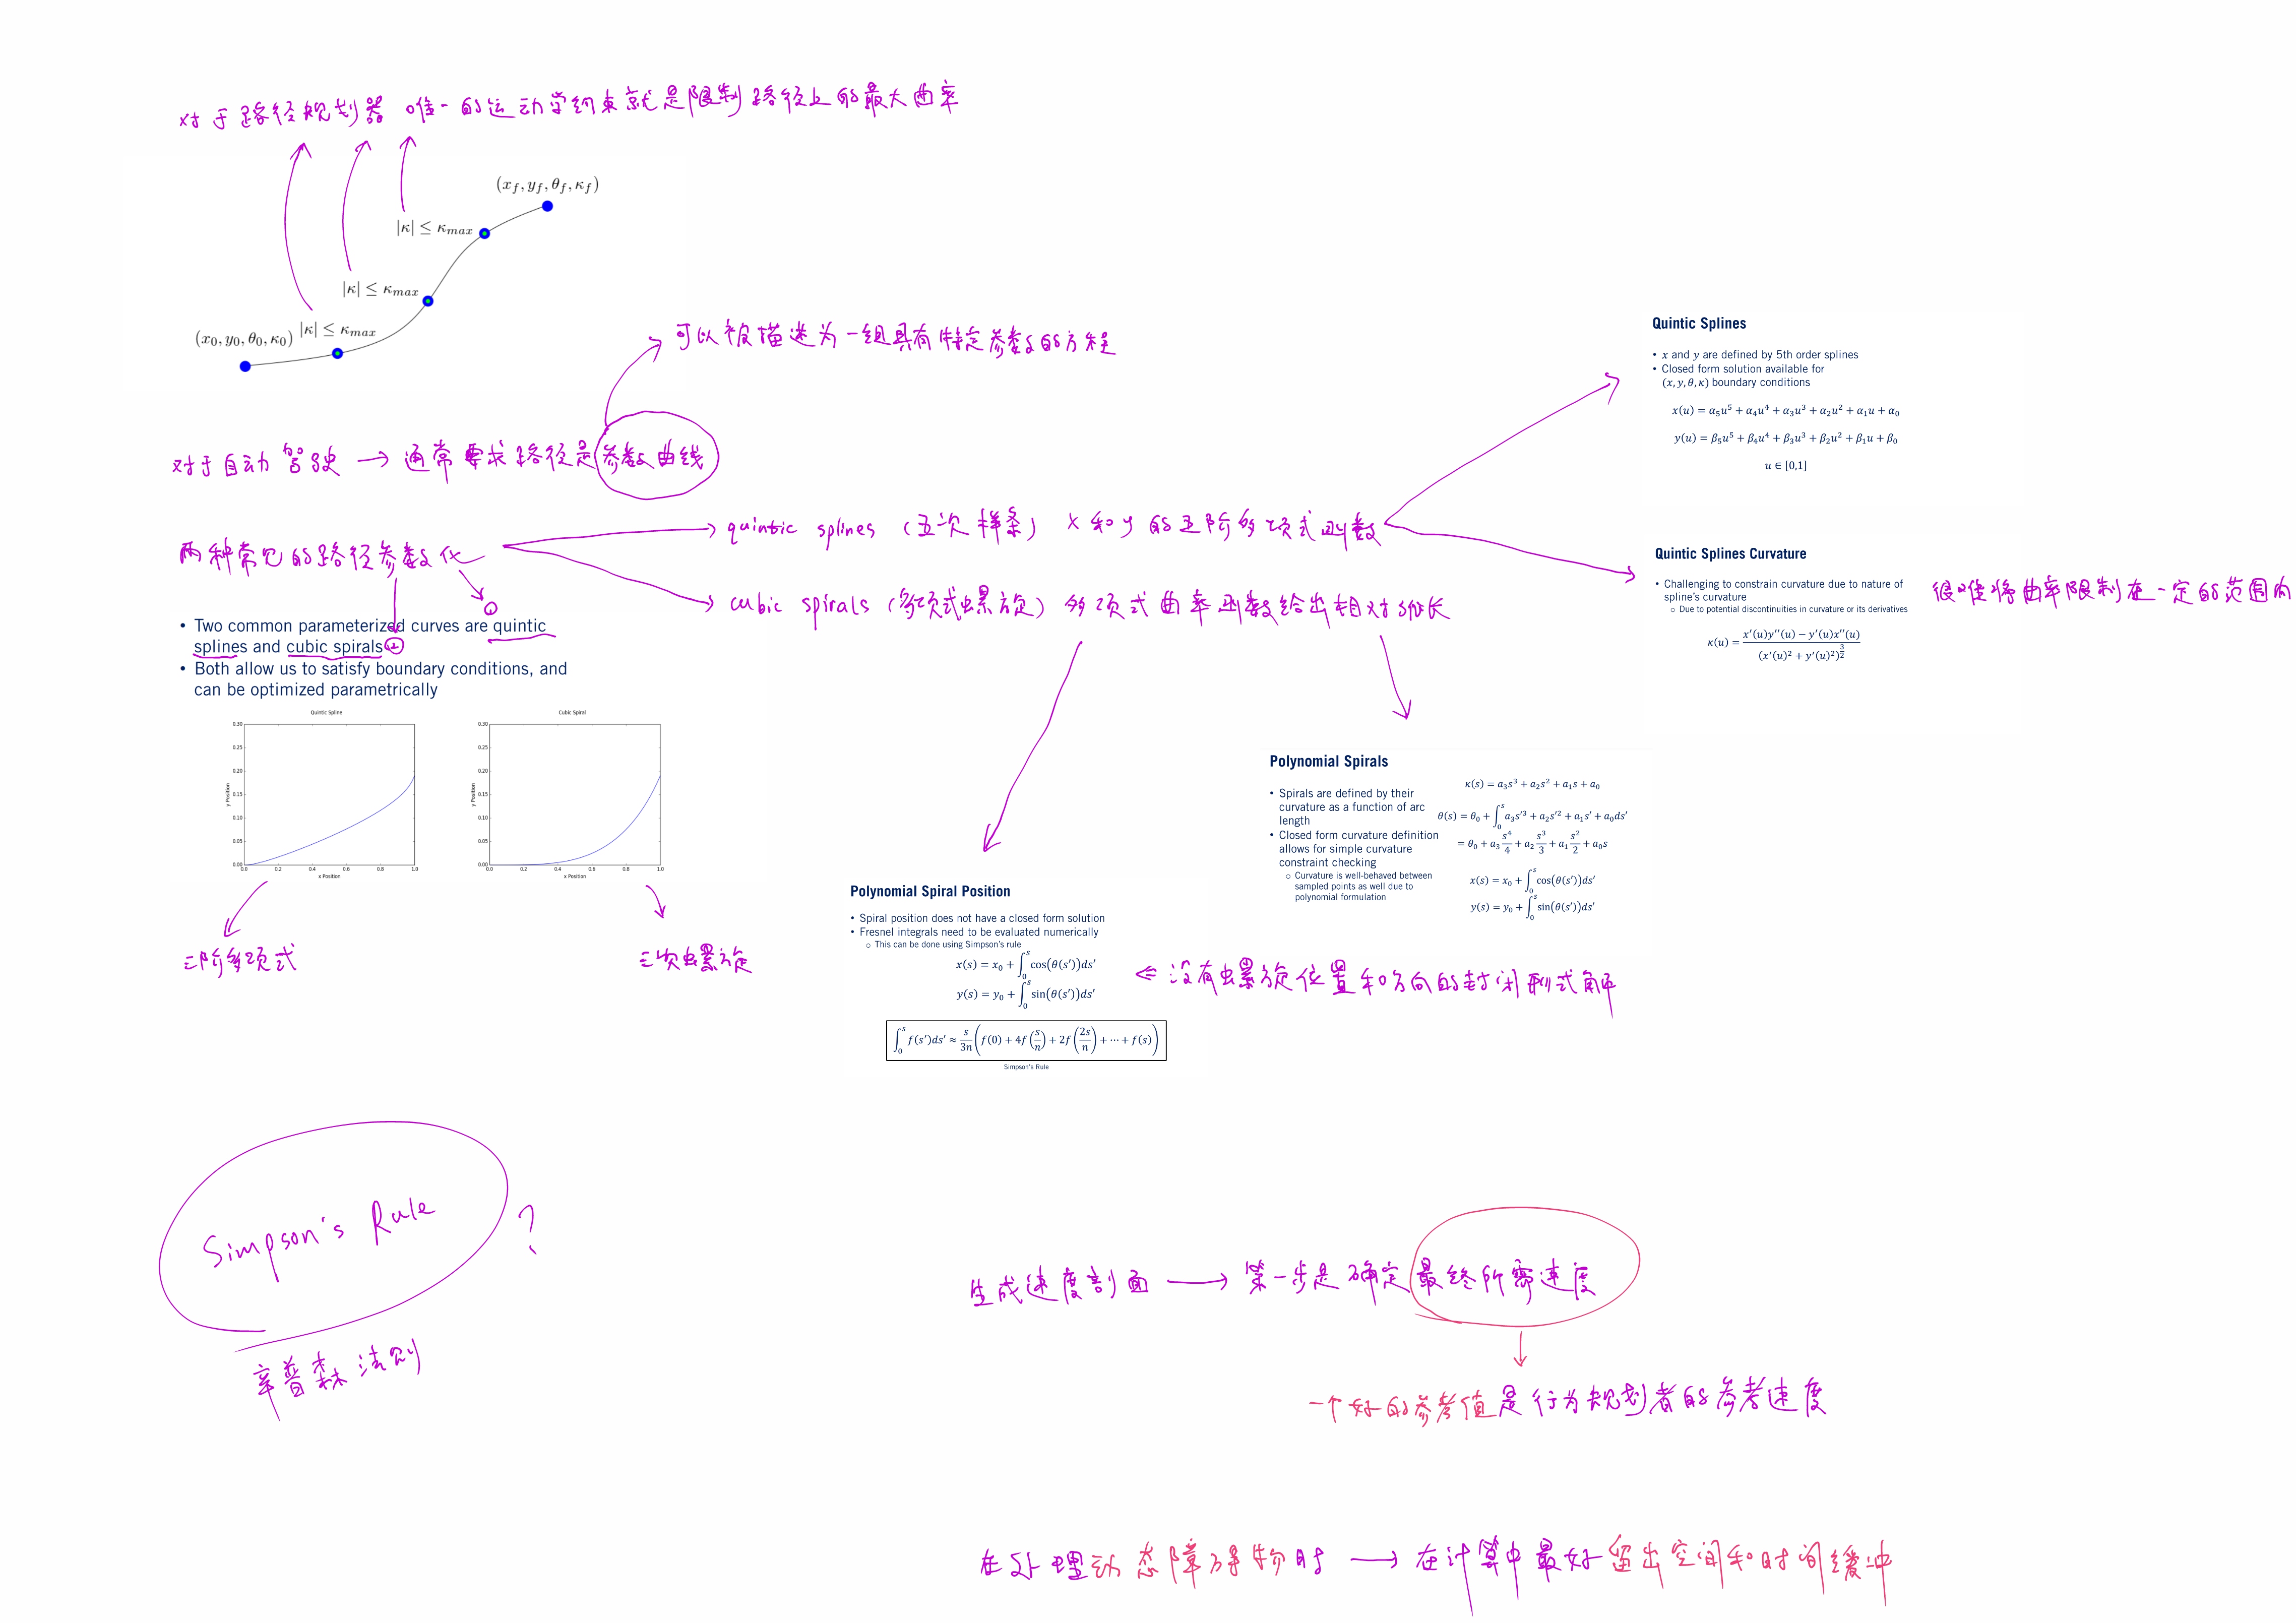 对于路径规划器 唯一的运动学约束就是限制路径上的最大曲率
(x_f, y_f, θ_f, κ_f)
|κ| ≤ κ_max
|κ| ≤ κ_max
(x_0, y_0, θ_0, κ_0) |κ| ≤ κ_max
可以被描述为一组具有特定参数的方程
对于自动驾驶 → 通常要求路径是参数曲线
两种常见的路径参数化
quintic splines (五次样条) x和y的五阶多项式函数
cubic spirals (多项式螺旋) 多项式曲率函数给出相对弧长
①
②
• Two common parameterized curves are quintic
splines and cubic spirals
• Both allow us to satisfy boundary conditions, and
can be optimized parametrically
Quintic Spline
0.30
0.25
0.20
0.15
0.10
0.05
0.00
0.0 0.2 0.4 0.6 0.8 1.0
x Position
y Position
Cubic Spiral
0.30
0.25
0.20
0.15
0.10
0.05
0.00
0.0 0.2 0.4 0.6 0.8 1.0
x Position
y Position
三阶多项式
三次螺旋
Quintic Splines
• x and y are defined by 5th order splines
• Closed form solution available for
(x, y, θ, κ) boundary conditions
x(u) = α₅u⁵ + α₄u⁴ + α₃u³ + α₂u² + α₁u + α₀
y(u) = β₅u⁵ + β₄u⁴ + β₃u³ + β₂u² + β₁u + β₀
u ∈ [0,1]
Quintic Splines Curvature
• Challenging to constrain curvature due to nature of
spline's curvature
○ Due to potential discontinuities in curvature or its derivatives
κ(u) = (x′(u)y″(u) − y′(u)x″(u)) / (x′(u)² + y′(u)²)^(3/2)
很难将曲率限制在一定的范围内
Polynomial Spirals
• Spirals are defined by their
curvature as a function of arc
length
• Closed form curvature definition
allows for simple curvature
constraint checking
○ Curvature is well-behaved between
sampled points as well due to
polynomial formulation
κ(s) = a₃s³ + a₂s² + a₁s + a₀
θ(s) = θ₀ + ∫₀ˢ a₃s′³ + a₂s′² + a₁s′ + a₀ds′
= θ₀ + a₃ s⁴/4 + a₂ s³/3 + a₁ s²/2 + a₀s
x(s) = x₀ + ∫₀ˢ cos(θ(s′))ds′
y(s) = y₀ + ∫₀ˢ sin(θ(s′))ds′
Polynomial Spiral Position
• Spiral position does not have a closed form solution
• Fresnel integrals need to be evaluated numerically
○ This can be done using Simpson's rule
x(s) = x₀ + ∫₀ˢ cos(θ(s′))ds′
y(s) = y₀ + ∫₀ˢ sin(θ(s′))ds′
⇐ 没有螺旋位置和方向的封闭形式解
∫₀ˢ f(s′)ds′ ≈ s/3n (f(0) + 4f(s/n) + 2f(2s/n) + ⋯ + f(s))
Simpson's Rule
Simpson's Rule ?
辛普森法则
生成速度剖面 → 第一步是确定最终所需速度
一个好的参考值是行为规划者的参考速度
在处理动态障碍物时 → 在计算中最好留出空间和时间缓冲